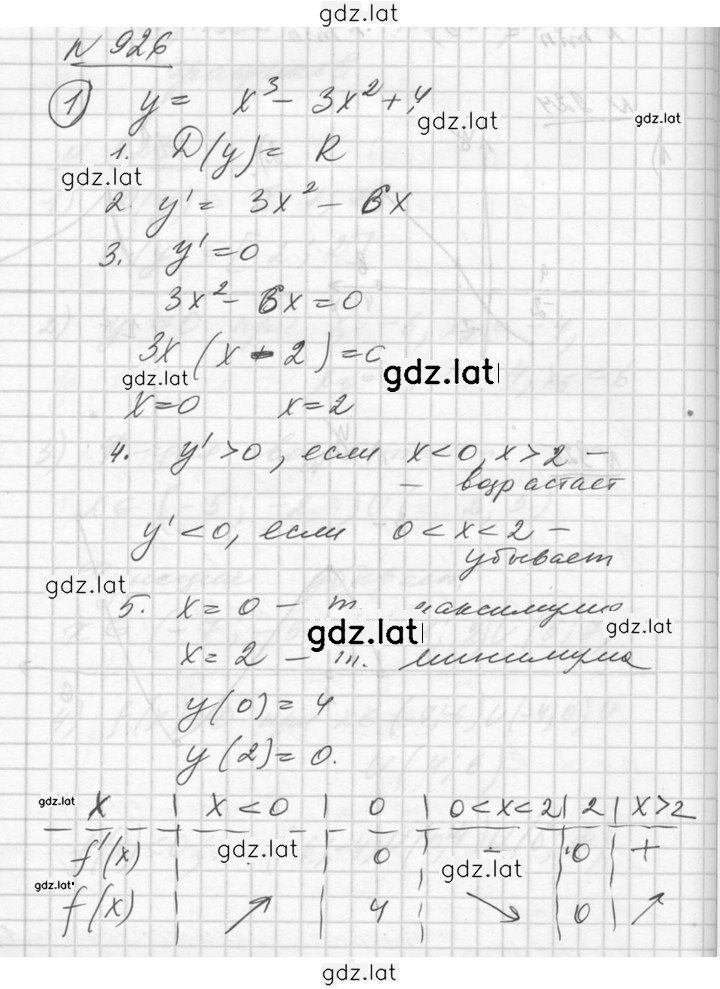 gdz.lat
№ 926
1) y = x³ - 3x² + 4
gdz.lat
1. D(y) = R
gdz.lat
2. y' = 3x² - 6x
3. y' = 0
3x² - 6x = 0
3x (x - 2) = 0
gdz.lat gdz.lat
x = 0 x = 2
4. y' > 0, если x < 0, x > 2 -
- возрастает
gdz.lat
y' < 0, если 0 < x < 2 -
убывает
gdz.lat
5. x = 0 - т. максимума
gdz.lat gdz.lat
x = 2 - т. минимума
y(0) = 4
y(2) = 0.
gdz.lat
x | x < 0 | 0 | 0 < x < 2 | 2 | x > 2
f'(x) | gdz.lat | 0 | - | 0 | +
gdz.lat gdz.lat
f(x) | ↗ | 4 | ↘ | 0 | ↗
gdz.lat